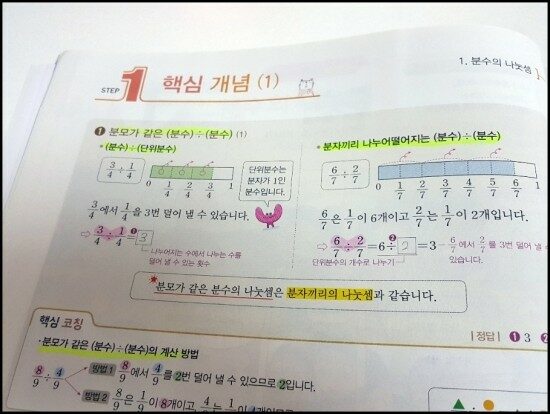 STEP 1 핵심 개념 (1)
1. 분수의 나눗셈
❶ 분모가 같은 (분수) ÷ (분수) (1)
• (분수) ÷ (단위분수)
3/4 ÷ 1/4
0 1/4 2/4 3/4 1
단위분수는
분자가 1인
분수입니다.
3/4에서 1/4을 3번 덜어 낼 수 있습니다.
⇨ 3/4 ÷ 1/4 = ❶ 3
나누어지는 수에서 나누는 수를
덜어 낼 수 있는 횟수
• 분자끼리 나누어떨어지는 (분수) ÷ (분수)
6/7 ÷ 2/7
0 1/7 2/7 3/7 4/7 5/7 6/7 1
6/7은 1/7이 6개이고 2/7는 1/7이 2개입니다.
⇨ 6/7 ÷ 2/7 = 6 ÷ ❷ 2 = 3
6/7에서 2/7를 3번 덜어 낼 수
있습니다.
단위분수의 개수로 나누기
분모가 같은 분수의 나눗셈은 분자끼리의 나눗셈과 같습니다.
핵심 코칭
| 정답 | ❶ 3
• 분모가 같은 (분수) ÷ (분수)의 계산 방법
8/9 ÷ 4/9
방법 1 8/9에서 4/9를 2번 덜어 낼 수 있으므로 2입니다.
방법 2 8/9은 1/9이 8개이고,